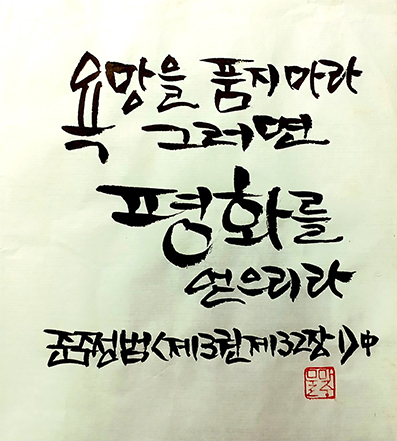 욕망을 품지마라
그러면
평화를
얻으리라
준주성범<제3권제32장1>中